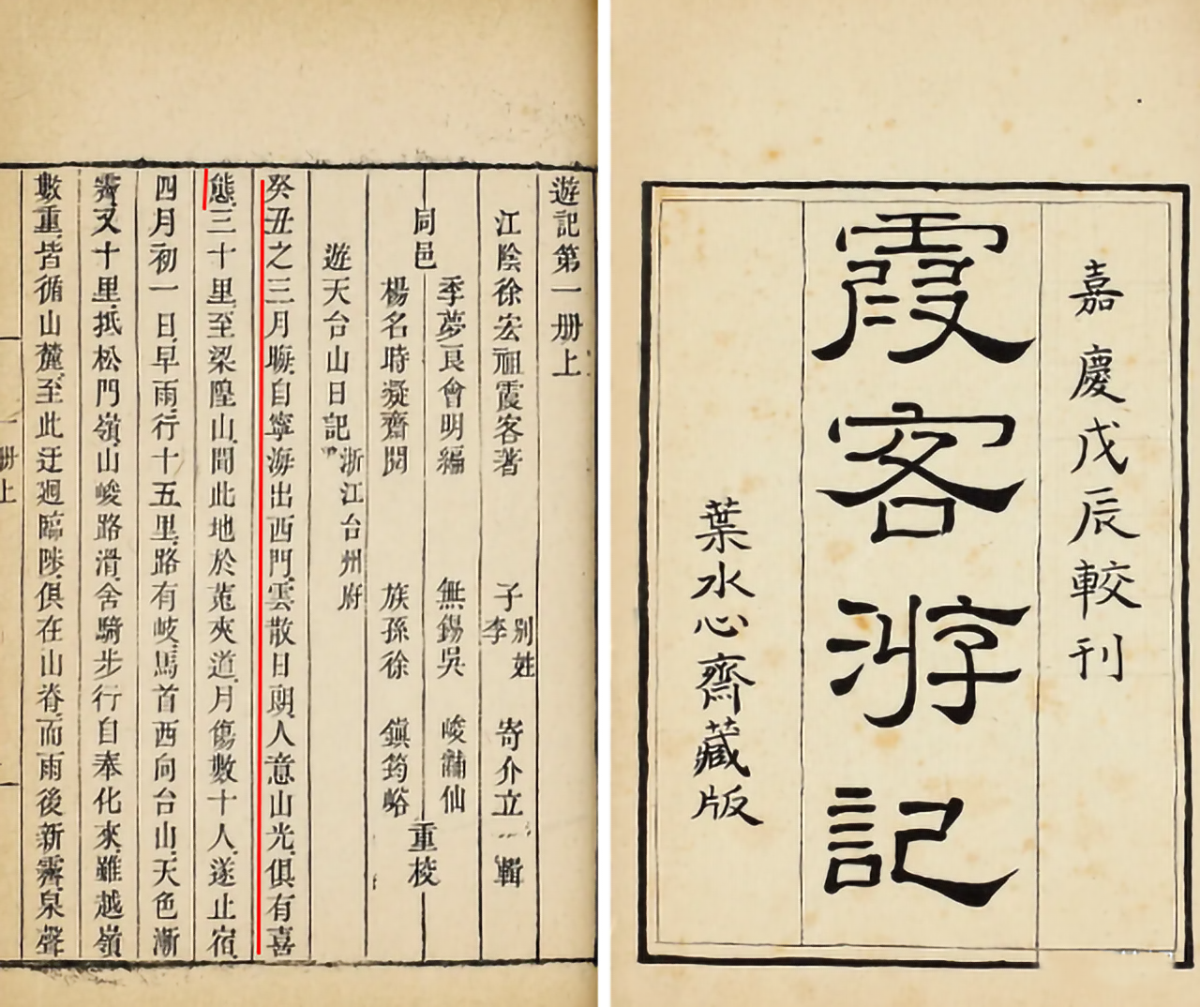 嘉慶戊辰較刊
霞客游記
葉水心齋藏版
遊記第一册上
江陰徐宏祖霞客著 子李別姓寄介立 輯
同邑
季夢良會明編 無錫吳 峻諵仙
楊名時凝齋閱 族孫徐 鎮筠峪
重校
遊天台山日記 浙江台州府
癸丑之三月晦自寧海出西門雲散日朗人意山光俱有喜
態三十里至梁隍山聞此地於菟夾道月傷數十人遂止宿
四月初一日早雨行十五里路有岐馬首西向台山天色漸
霽又十里抵松門嶺山峻路滑舍騎步行自奉化來雖越嶺
數重皆循山麓至此迂廻臨陟俱在山脊而雨後新霽泉聲
册上